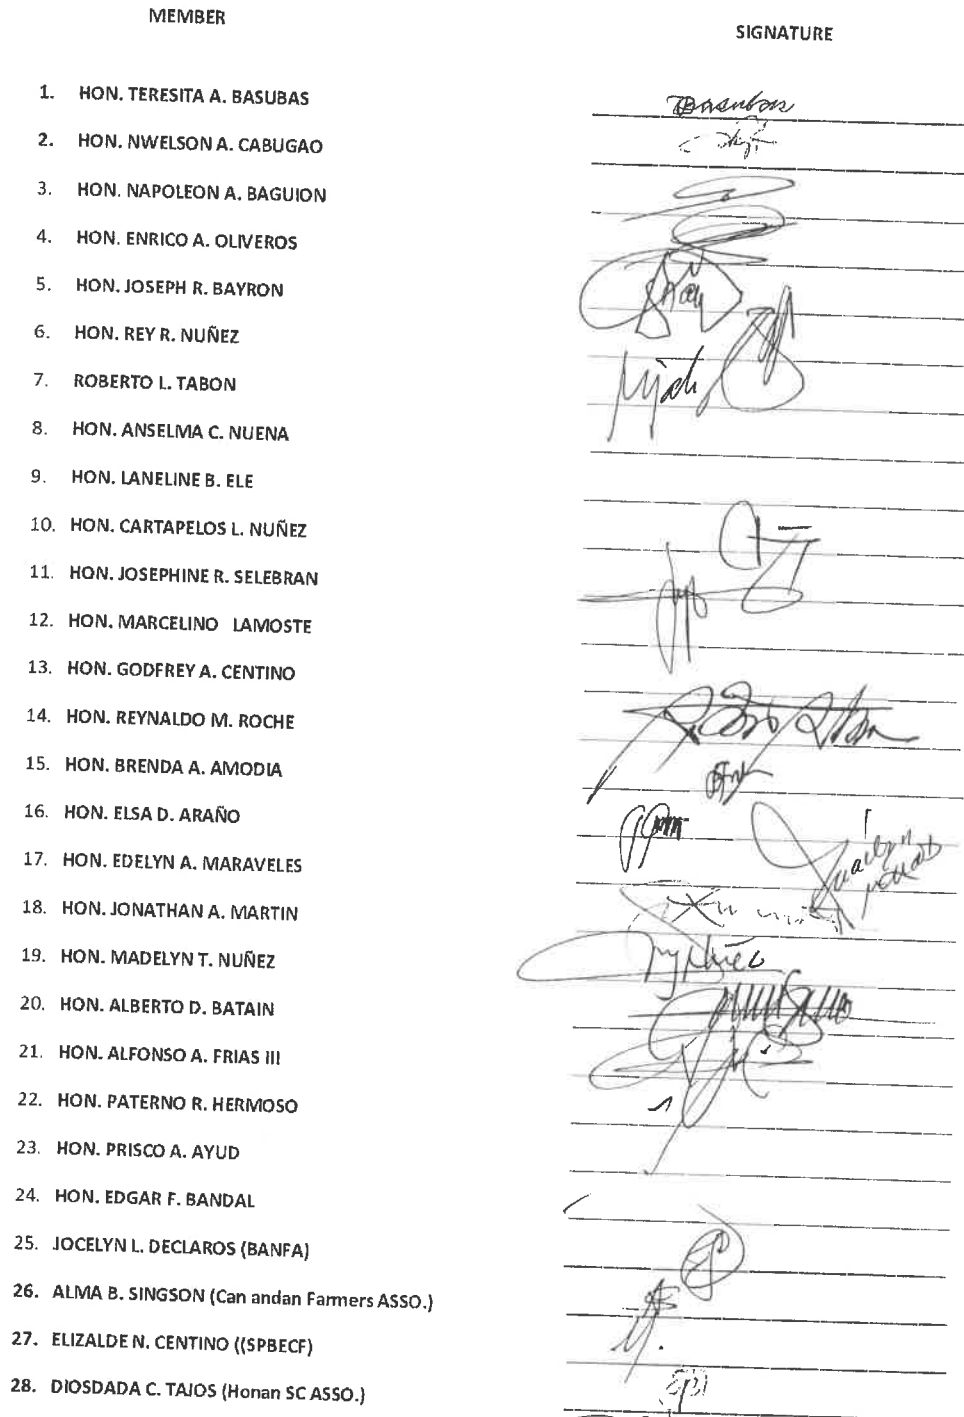 MEMBER
SIGNATURE
1. HON. TERESITA A. BASUBAS
Basubas
2. HON. NWELSON A. CABUGAO
3. HON. NAPOLEON A. BAGUION
4. HON. ENRICO A. OLIVEROS
5. HON. JOSEPH R. BAYRON
6. HON. REY R. NUÑEZ
7. ROBERTO L. TABON
8. HON. ANSELMA C. NUENA
9. HON. LANELINE B. ELE
10. HON. CARTAPELOS L. NUÑEZ
11. HON. JOSEPHINE R. SELEBRAN
12. HON. MARCELINO LAMOSTE
13. HON. GODFREY A. CENTINO
14. HON. REYNALDO M. ROCHE
15. HON. BRENDA A. AMODIA
16. HON. ELSA D. ARAÑO
17. HON. EDELYN A. MARAVELES
18. HON. JONATHAN A. MARTIN
19. HON. MADELYN T. NUÑEZ
20. HON. ALBERTO D. BATAIN
21. HON. ALFONSO A. FRIAS III
22. HON. PATERNO R. HERMOSO
23. HON. PRISCO A. AYUD
24. HON. EDGAR F. BANDAL
25. JOCELYN L. DECLAROS (BANFA)
26. ALMA B. SINGSON (Can andan Farmers ASSO.)
27. ELIZALDE N. CENTINO ((SPBECF)
28. DIOSDADA C. TAJOS (Honan SC ASSO.)